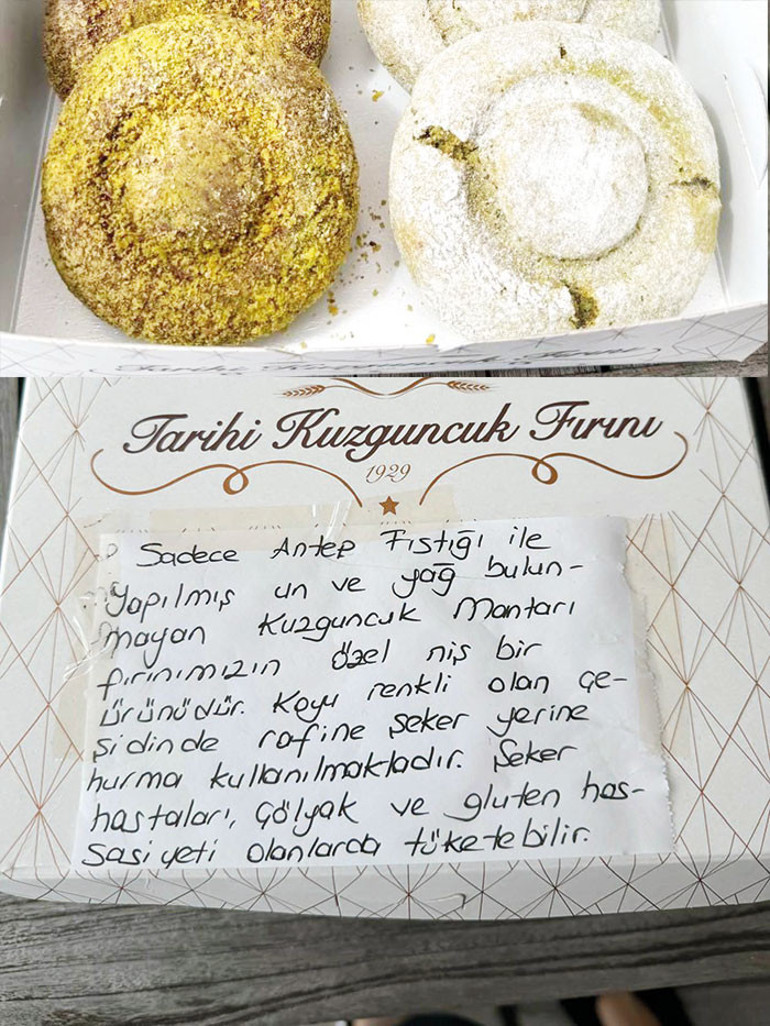 Tarihi Kuzguncuk Fırını
1929
Sadece Antep Fıstığı ile
yapılmış un ve yağ bulun-
mayan Kuzguncuk Mantarı
fırınımızın özel niş bir
ürünüdür. Koyu renkli olan çe-
şidinde rafine şeker yerine
hurma kullanılmaktadır. Şeker
hastaları, çölyak ve gluten has-
sasiyeti olanlarda tüketebilir.